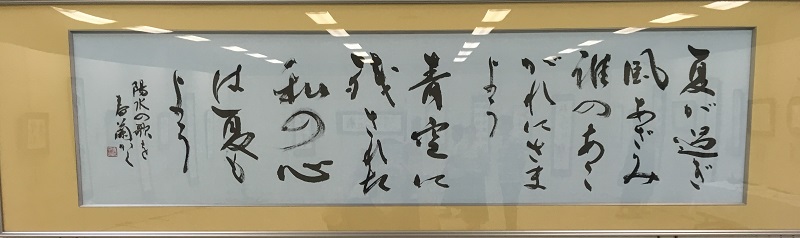 夏が過ぎ
風あざみ
誰のあこ
がれにさま
よう
青空に
残された
私の心
は夏も
よう
陽水の歌を
かく